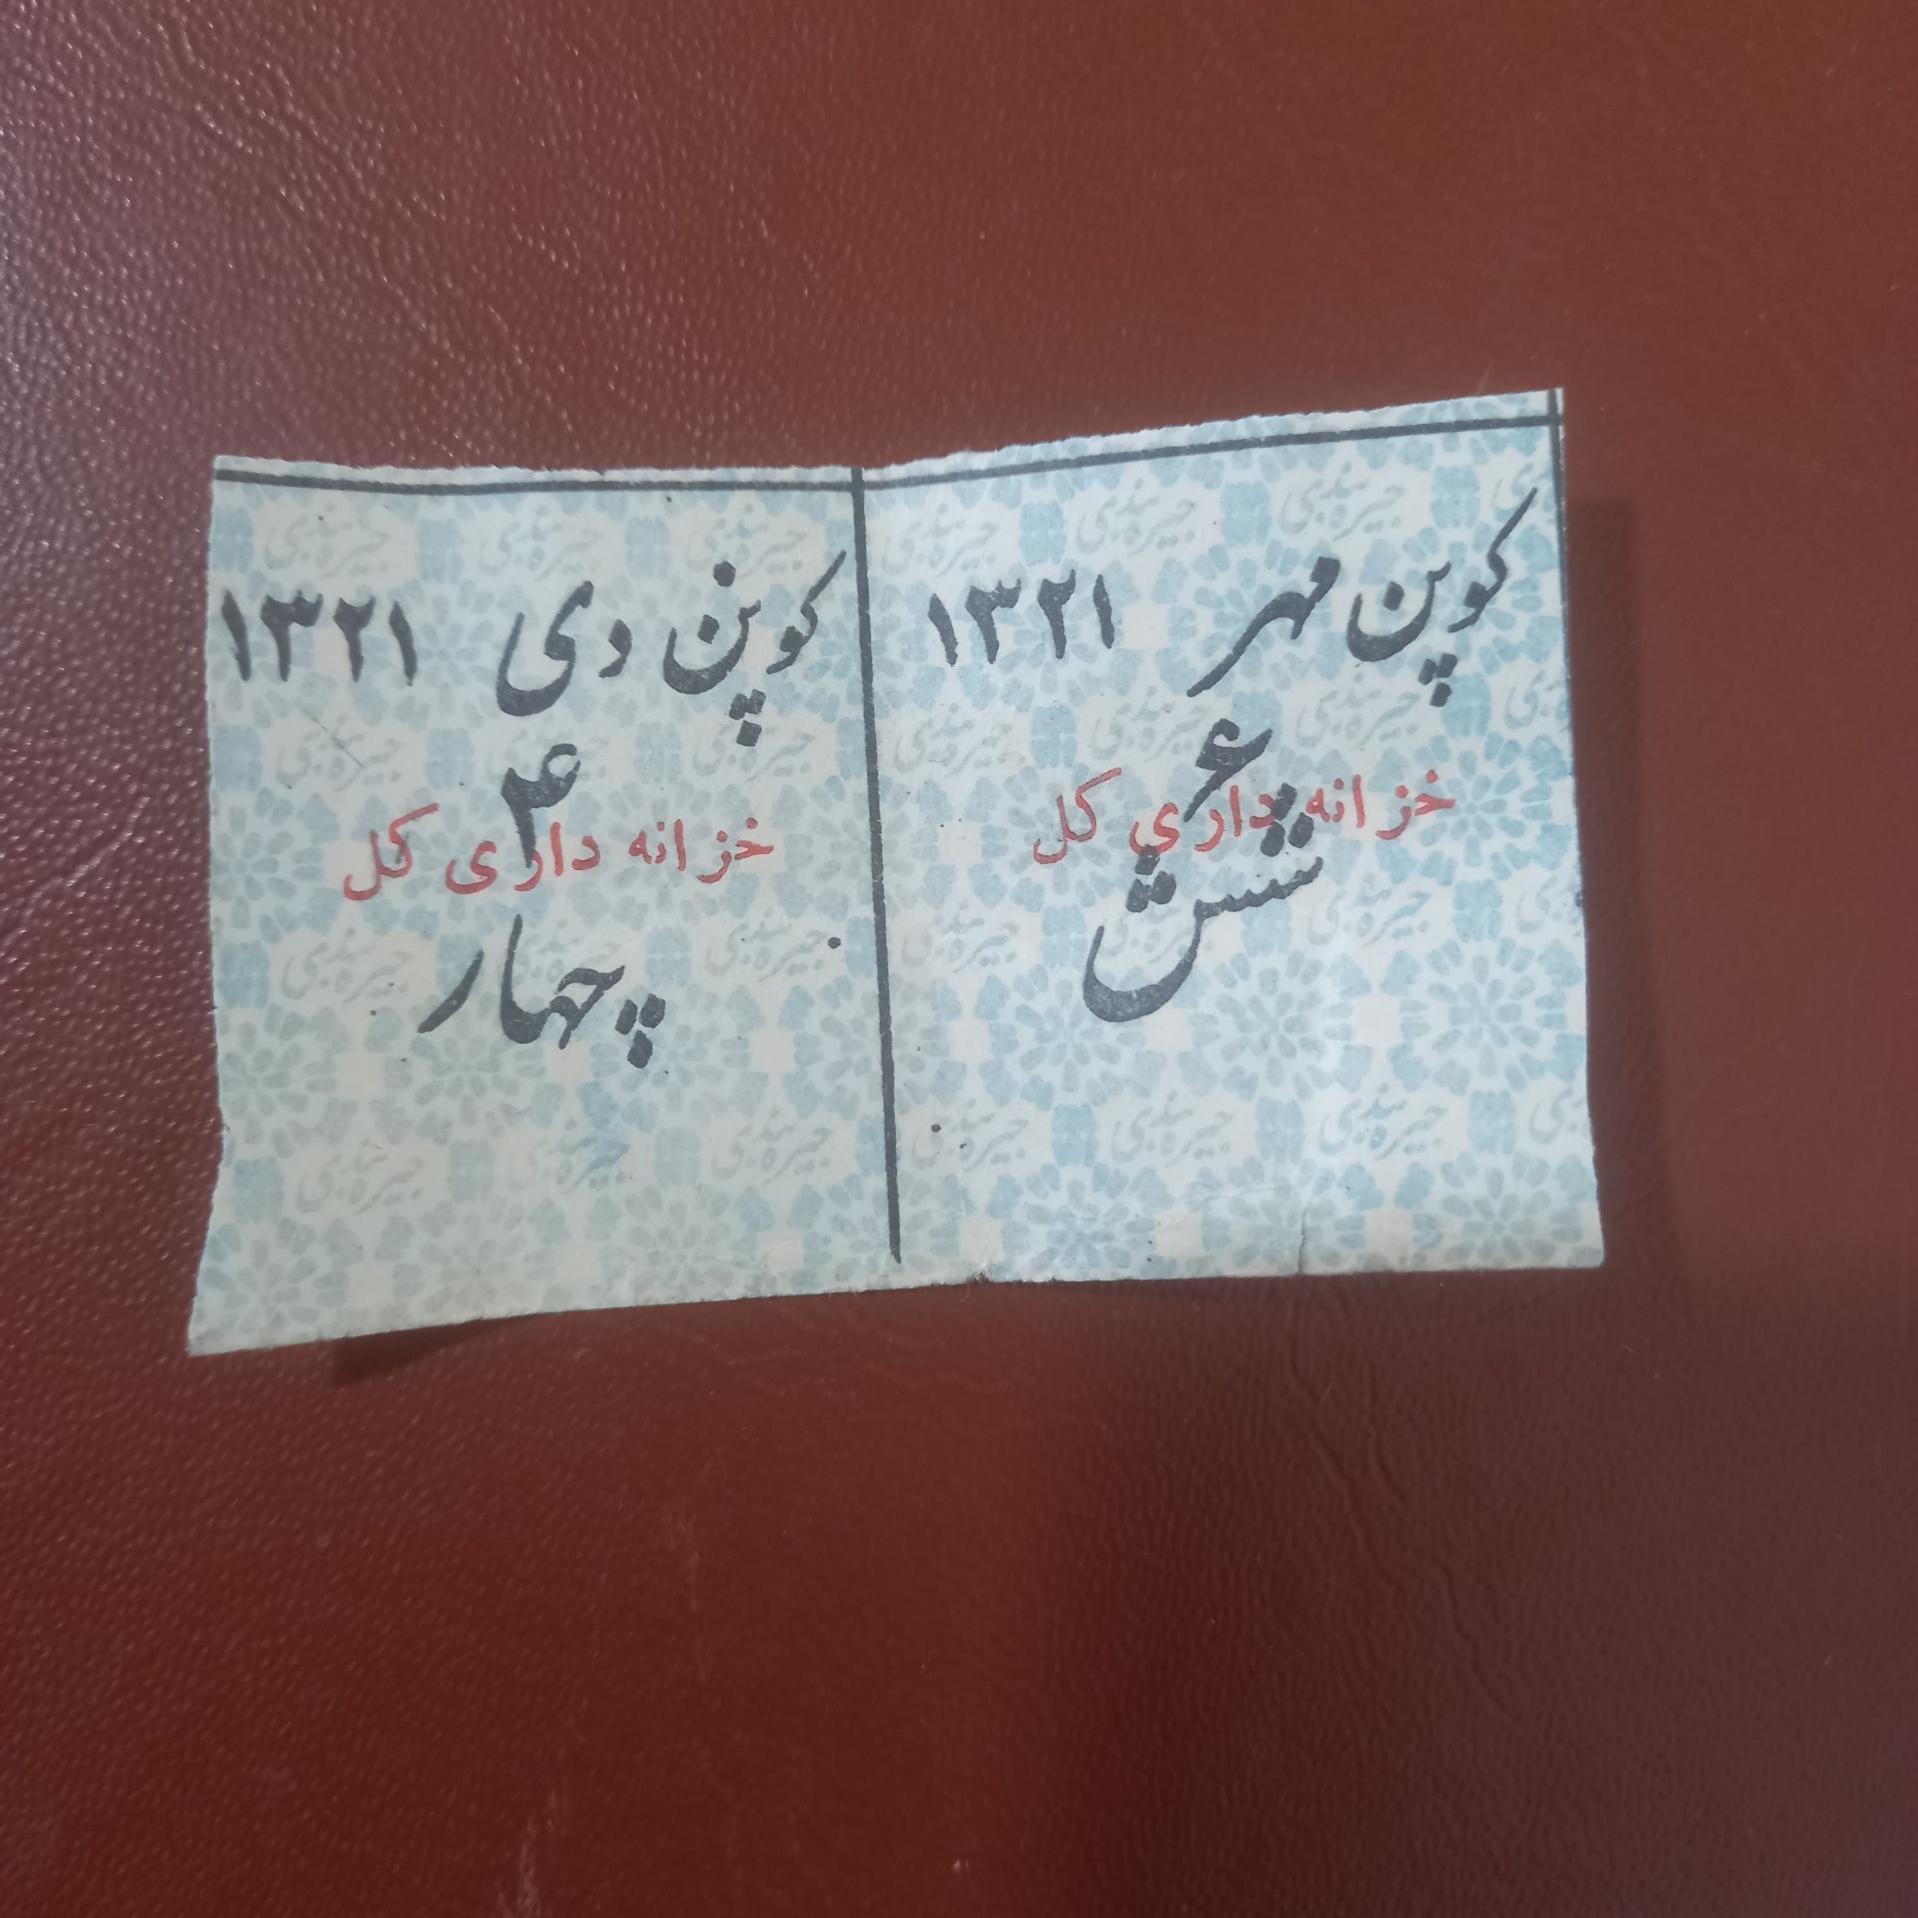 کوپن مهر ۱۳۲۱
۶
خزانه داری کل
شش
کوپن دی ۱۳۲۱
۴
خزانه داری کل
چهار
جیره بندی